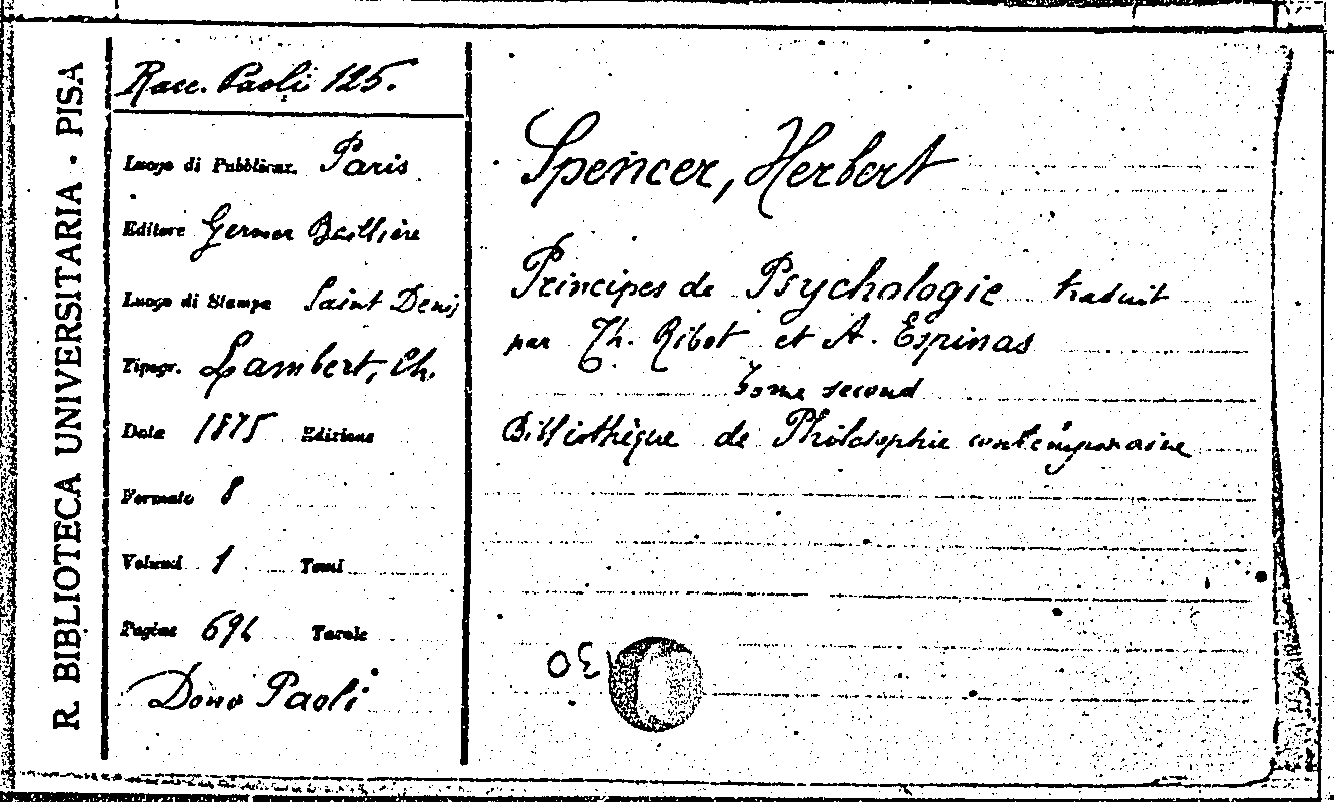 R. BIBLIOTECA UNIVERSITARIA - PISA
Racc. Paoli 125.
Luogo di Pubblicaz. Paris
Editore Germer Baillière
Luogo di Stampa Saint Denis
Tipogr. Lambert, Ch.
Data 1875 Edizione
Formato 8
Volumi 1 Tomi
Pagine 696 Tavole
Dono Paoli
Spencer, Herbert
Principes de Psychologie traduit
par Th. Ribot et A. Espinas
Tome second
Bibliothèque de Philosophie contemporaine
30